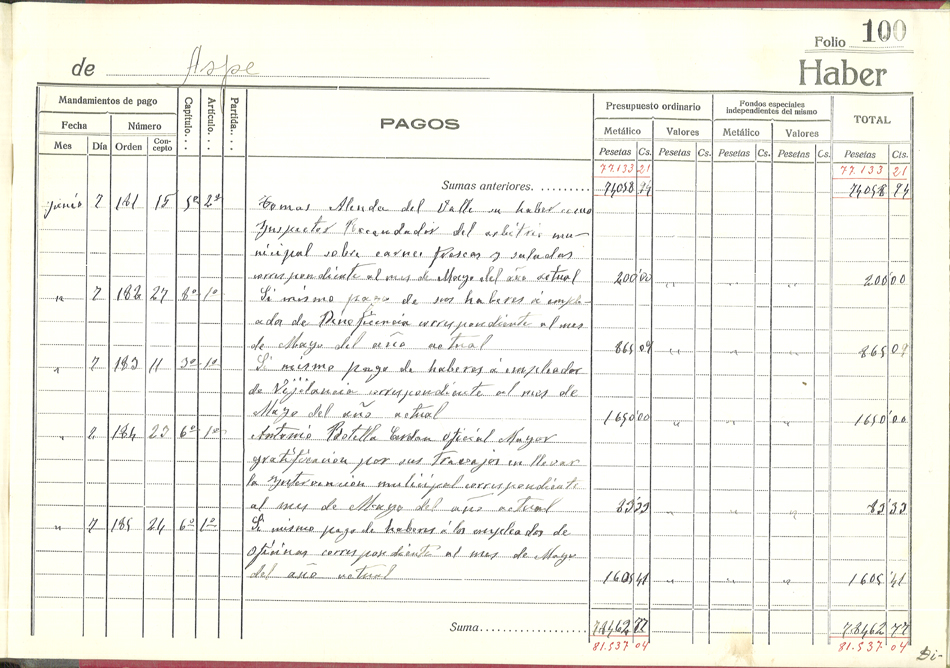 Folio 100
de Aspe
Haber
Mandamientos de pago
Capítulo...
Artículo...
Partida....
PAGOS
Presupuesto ordinario
Fondos especiales independientes del mismo
TOTAL
Fecha Número
Metálico Valores Metálico Valores
Mes Día Orden Concepto
Pesetas Cs. Pesetas Cs. Pesetas Cs. Pesetas Cs. Pesetas Cts.
77.133 21 77.133 21
Sumas anteriores. 74058 74 74058 74
Junio 7 181 15 5º 2º Tomas Alenda del Valle su haber como
Inspector Recaudador del arbitrio mu-
nicipal sobre carnes frescas y saladas
correspondiente al mes de Mayo del año actual 200'00 " " " 200'00
" 7 182 27 8º 1º Si mismo pago de sus haberes á emple-
ados de Beneficencia correspondiente al mes
de Mayo del año actual 865 09 " " " 865 09
" 7 183 11 3º 1º Si mismo pago de haberes á empleados
de Vijilancia correspondiente al mes de
Mayo del año actual 1650'00 " " " 1650'00
" 184 23 6º 1º Antonio Botella Cerdan Oficial Mayor
gratificacion por sus trabajos en llevar
la Intervencion municipal correspondiente
al mes de Mayo del año actual 83'33 " " " 83'33
" 7 185 24 6º 1º Si mismo pago de haberes á los empleados de
oficinas correspondiente al mes de Mayo
del año actual 1605'41 " " " 1605'41
Suma 78462 77 78462 77
81.537 04 81.537 04
Di-